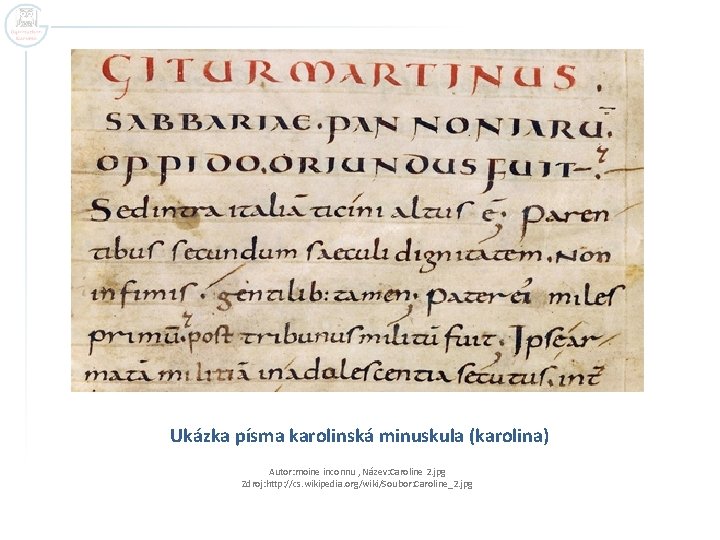 GITUR MARTINUS.
SABBARIAE · PANNONIARŪ.
OPPIDO. ORIUNDUS FUIT.
Sed intra italiā ticini altus ē. Paren
tibus secundum saeculi dignitatem. Non
infimis. gentilib: tamen. Pater ei miles
primū. post tribunus militū fuit. Ipse ar
matā militiā in adolescentia secutus. int
Ukázka písma karolinská minuskula (karolina)
Autor:moine inconnu , Název:Caroline 2.jpg
Zdroj:http://cs.wikipedia.org/wiki/Soubor:Caroline_2.jpg